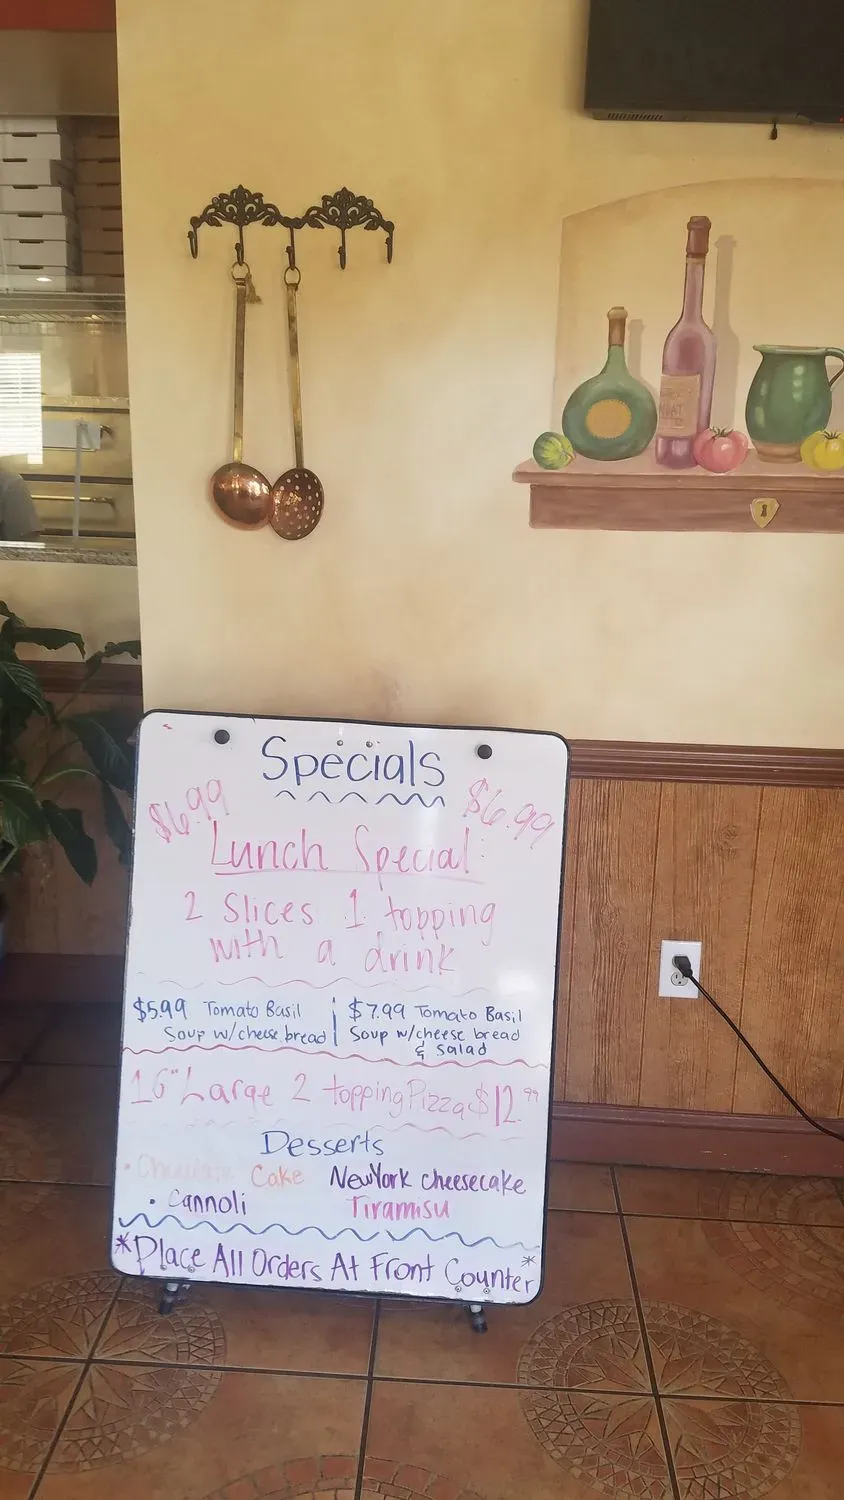 Specials
$6.99 $6.99
Lunch Special:
2 Slices 1 topping
with a drink
$5.99 Tomato Basil
Soup w/cheese bread
$7.99 Tomato Basil
Soup w/cheese bread
& Salad
16" Large 2 topping Pizza $12.99
Desserts
• Chocolate Cake New York cheesecake
• Cannoli Tiramisu
*Place All Orders At Front Counter*